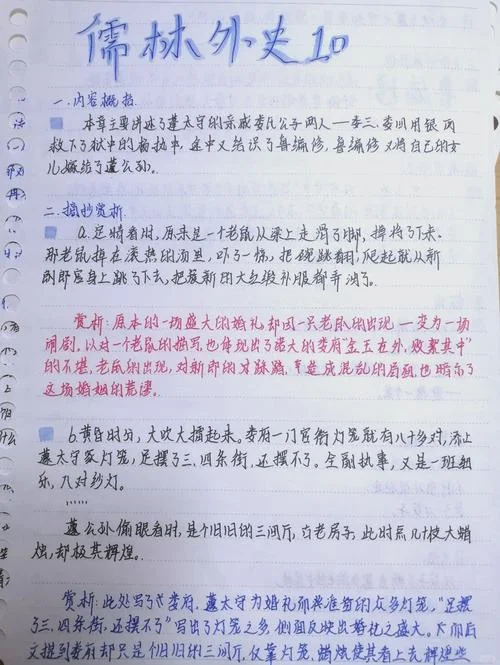 儒林外史10
一.内容概括
本章主要讲述了蘧太守的亲戚娄氏公子两人一娄三、娄四用银两
救下了狱中的杨执中，途中又结识了鲁编修，鲁编修又将自己的女
儿嫁给了蘧公孙。
二.摘抄赏析
a.定睛看时，原来是一个老鼠从梁上走滑了脚，掉将下来。
那老鼠掉在滚热的汤里，吓了一惊，把碗跳翻，爬起就从新
郎官身上跳了下去，把簇新的大红缎补服都弄油了。
赏析：原本的一场盛大的婚礼，却因一只老鼠的出现一变为一场
闹剧，以对一个老鼠的描写，也体现出了盛大的娄府“金玉在外，败絮其中”
的不堪，老鼠的出现，对新郎的踩踏，造成混乱的局面，也暗示了
这场婚姻的荒谬。
b.黄昏时分，大吹大擂起来。娄府一门官衔灯笼就有八十多对，添上
蘧太守家灯笼，足摆了三、四条街，还摆不了。全副执事，又是一班细
乐，八对纱灯。
蘧公孙偷眼看时，是个旧旧的三间厅古老房子，此时点几十枝大蜡
烛，却极其辉煌。
赏析：此处写了娄府，蘧太守为婚礼而准备的众多灯笼，“足摆
了三、四条街，还摆不了”写出了灯笼之多，侧面反映出婚礼之盛大。而后
文提到娄府却只是个旧旧的三间厅，仅靠灯笼、蜡烛使其看上去辉煌些